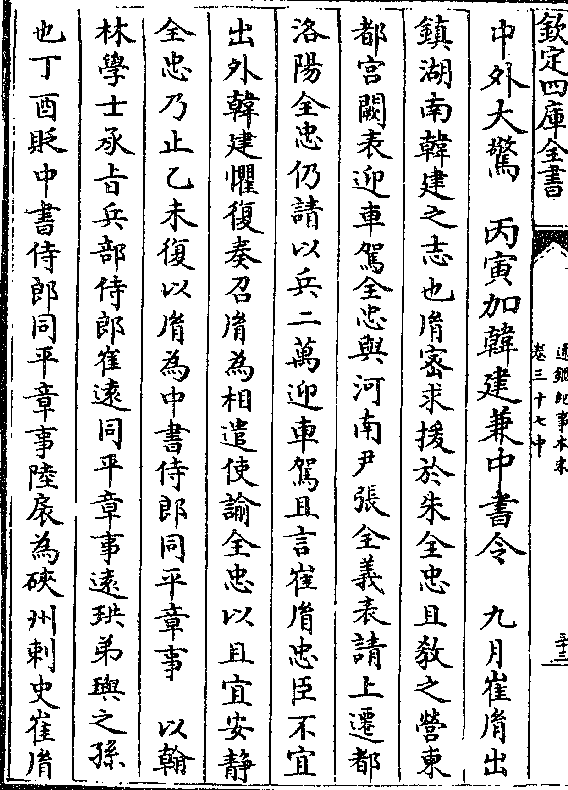 欽定四庫全書
通鑑紀事本末
卷三十七中
三十三
中外大驚　丙寅加韓建兼中書令　九月崔胤出
鎮湖南韓建之志也胤密求援於朱全忠且教之營東
都宮闕表迎車駕全忠與河南尹張全義表請上遷都
洛陽全忠仍請以兵二萬迎車駕且言崔胤忠臣不宜
出外韓建懼復奏召胤為相遣使諭全忠以且宜安静
全忠乃止乙未復以胤為中書侍郎同平章事　以翰
林學士承㫖兵部侍郎崔逺同平章事逺珙弟璵之孫
也丁酉貶中書侍郎同平章事陸扆為硤州刺史崔胤